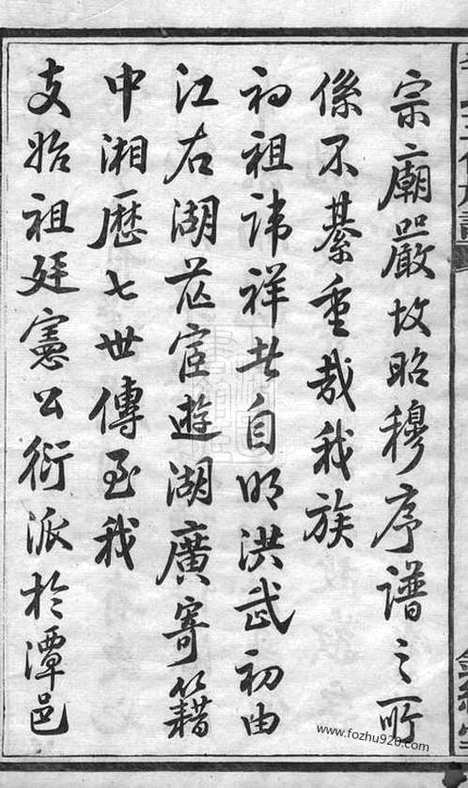 宗廟嚴故昭穆序譜之所
係不綦重哉我族
初祖諱祥者自明洪武初由
江右湖茫宦遊湖廣寄籍
中湘歷七世傳至我
支始祖廷憲公衍派於潭邑
www.fozhu920.com